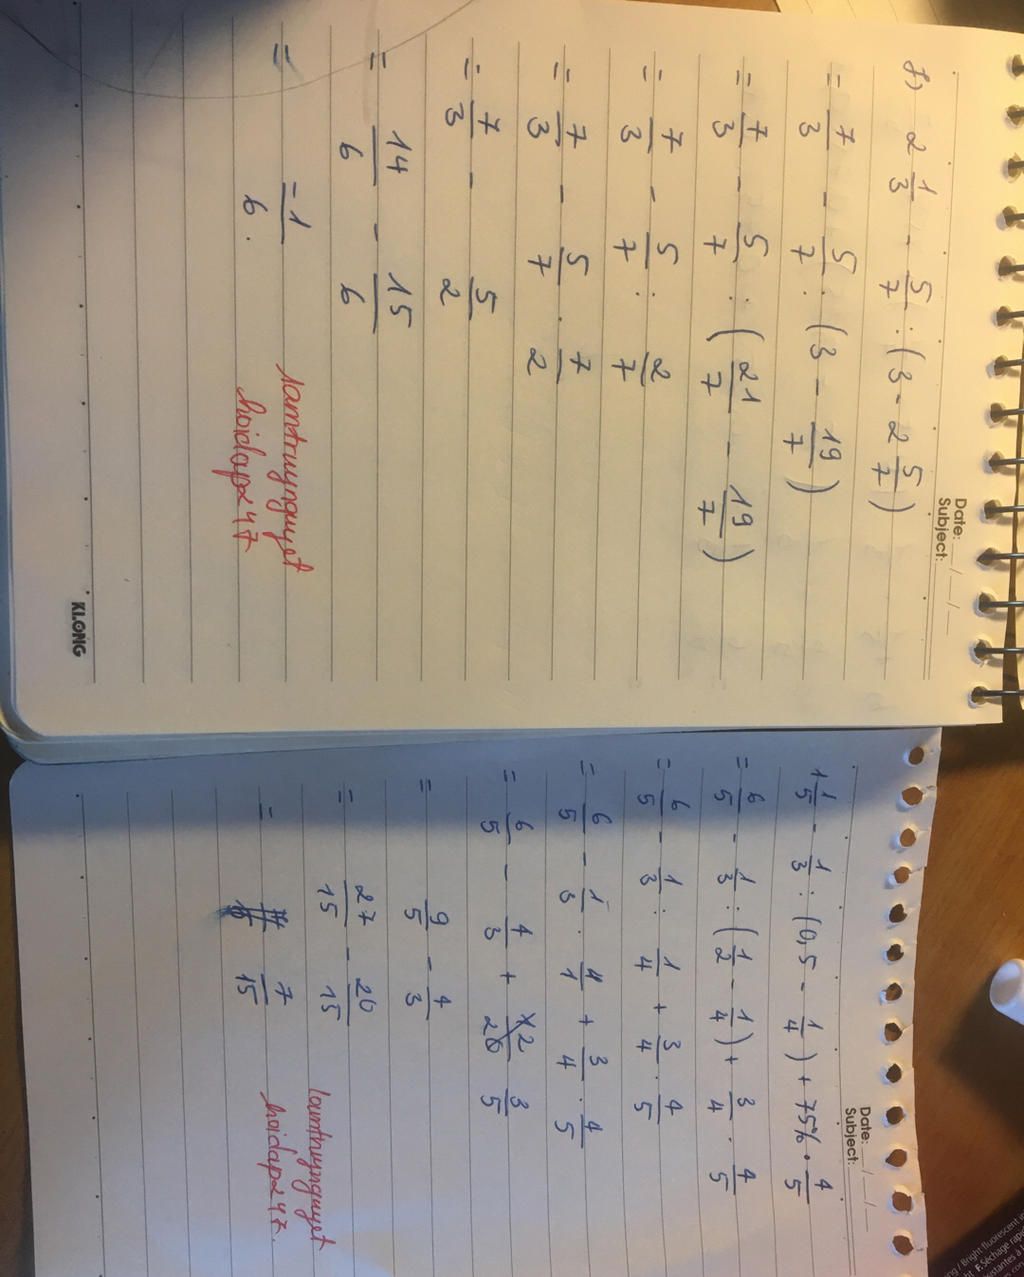 Date: __/__/__
Subject:
f) 2 1/3 - 5/7 : (3 - 2 5/7)
= 7/3 - 5/7 : (3 - 19/7)
= 7/3 - 5/7 : (21/7 - 19/7)
= 7/3 - 5/7 : 2/7
= 7/3 - 5/7 . 7/2
= 7/3 - 5/2
= 14/6 - 15/6
= -1/6 .
lamtruynguyet
hoidap247
KLONG
Date: __/__/__
Subject:
1 1/5 - 1/3 : (0,5 - 1/4) + 75% . 4/5
= 6/5 - 1/3 : (1/2 - 1/4) + 3/4 . 4/5
= 6/5 - 1/3 : 1/4 + 3/4 . 4/5
= 6/5 - 1/3 . 4/1 + 3/4 . 4/5
= 6/5 - 4/3 + 12/20 3/5
= 9/5 - 4/3
= 27/15 - 20/15
= 7/15
hoidap247.